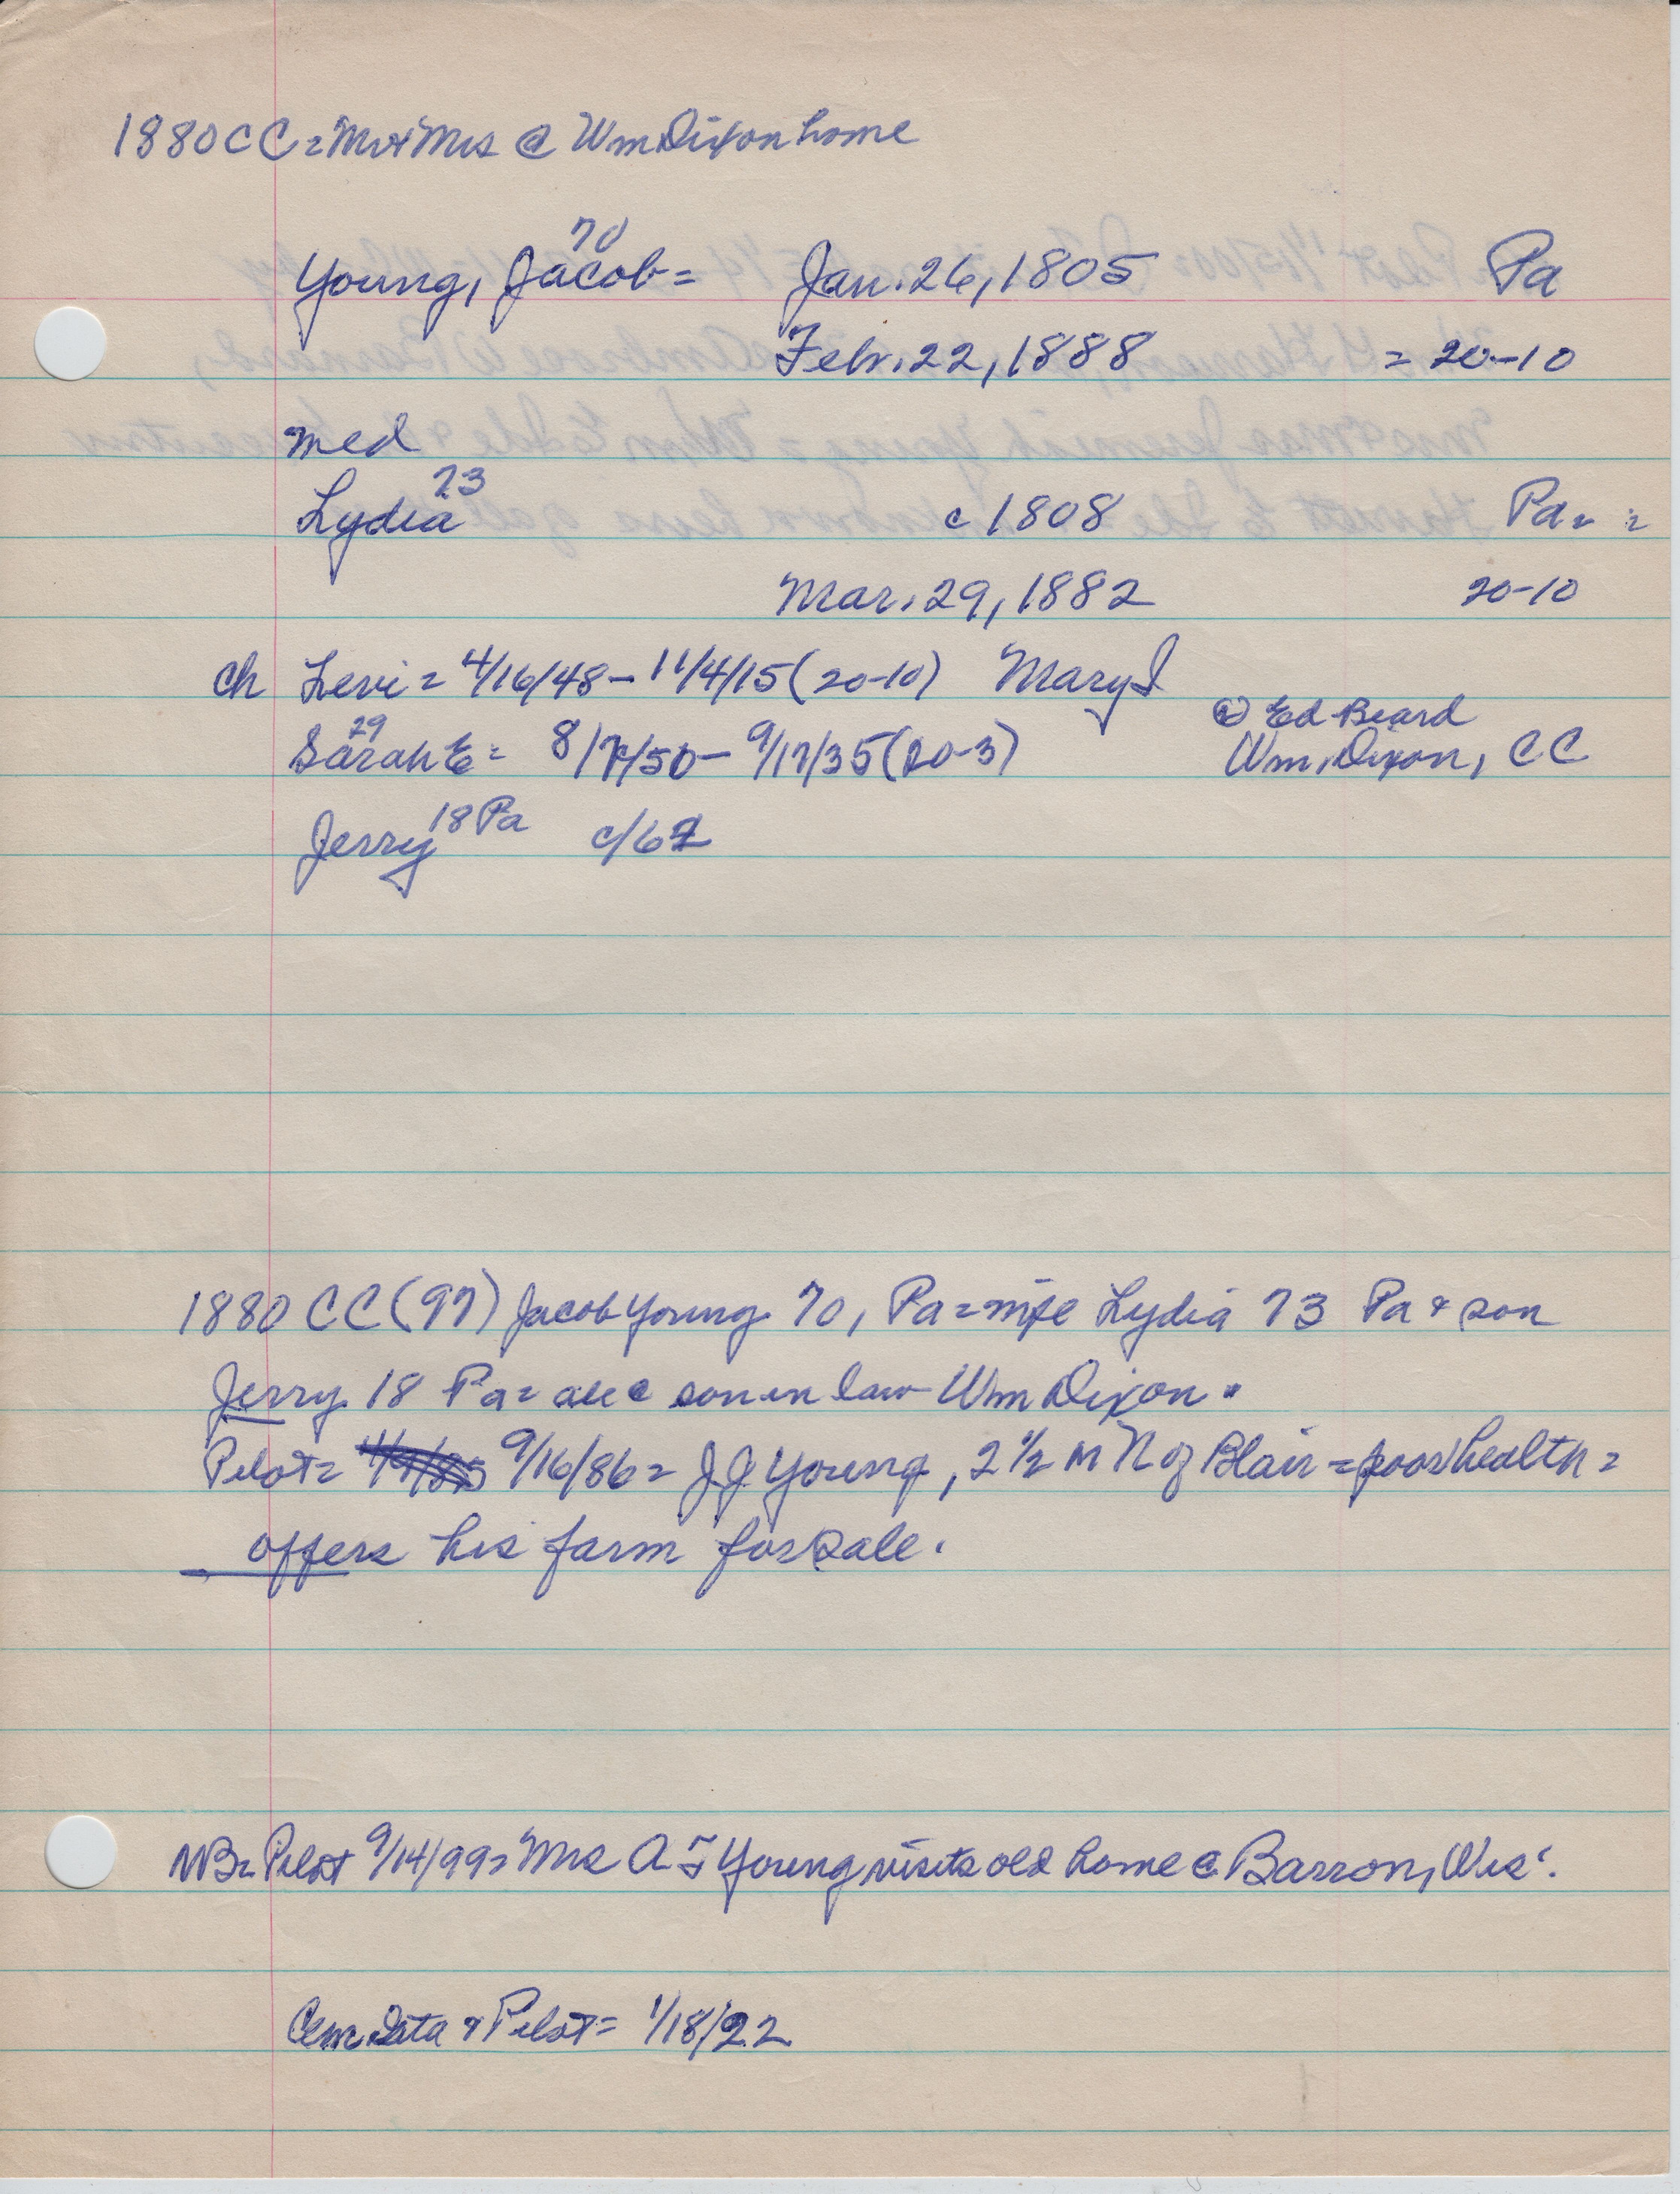 1880 CC = Mr + Mrs @ Wm Dixon home
70
Young, Jacob = Jan. 26, 1805 Pa
Febr. 22, 1888 = 20-10
med
73
Lydia c 1808 Pa = =
Mar. 29, 1882 20-10
ch Levi = 4/16/48 - 11/4/15 (20-10) Mary I
29 ② Ed Beard
Sarah E = 8/ /50 - 9/17/35 (20-3) Wm. Dixon, CC
Jerry 18 Pa c/62
1880 CC (97) Jacob Young 70, Pa = wife Lydia 73 Pa + son
Jerry 18 Pa = all @ son in law Wm Dixon.
Pilot = 9/16/86 = J J Young, 2 1/2 m N of Blair = poor health =
offers his farm for sale.
NB = Pilot 9/14/99 = Mrs A F Young visits old home @ Barron, Wis.
Cem data + Pilot = 1/18/22